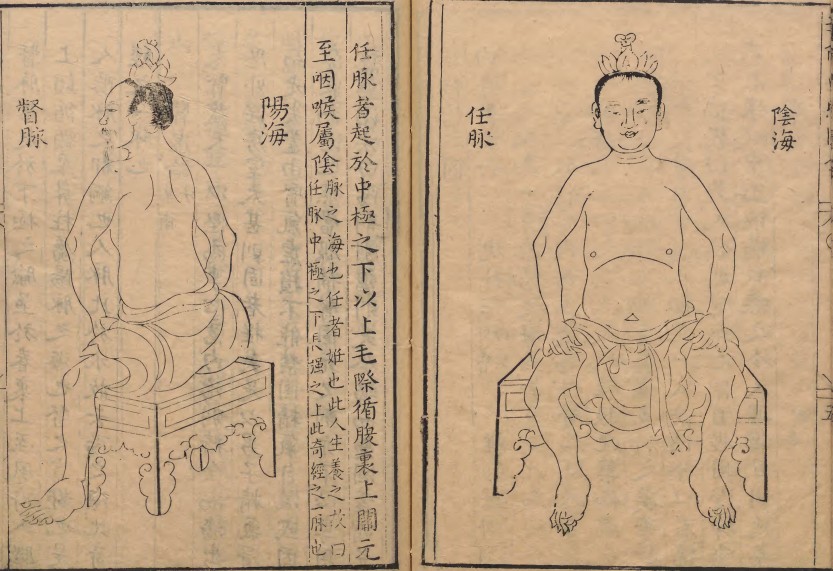 陰海
任脈
任脈者起於中極之下以上毛際循腹裏上關元
至咽喉屬陰
脈之海也任者姙也此人生養之故曰
任脈中極之下長强之上此奇經之一脈也
陽海
督脈